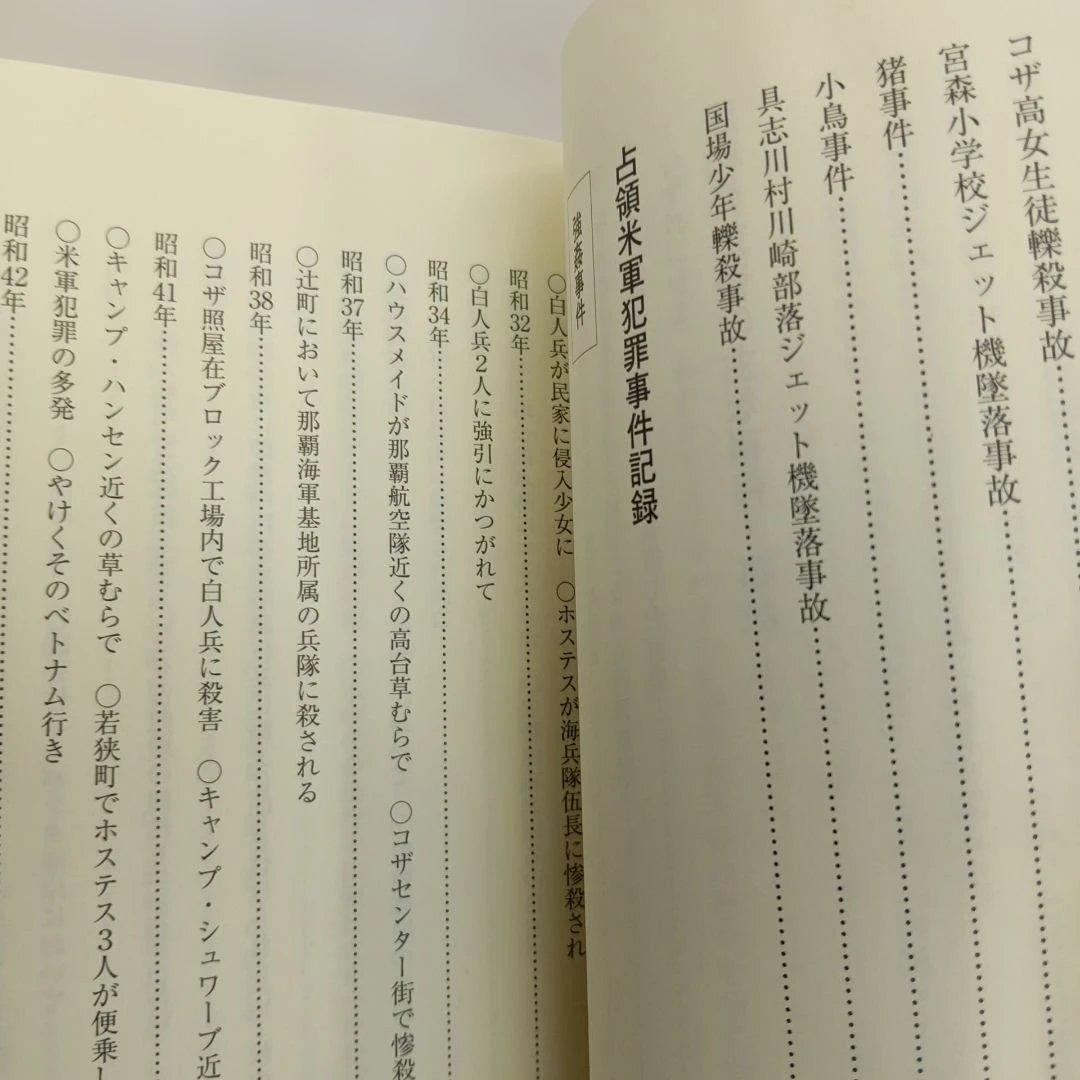 コザ高女生徒轢殺事故…………
宮森小学校ジェット機墜落事故…………
猪事件…………
小鳥事件…………
具志川村川崎部落ジェット機墜落事故…………
国場少年轢殺事故…………
占領米軍犯罪事件記録
強姦事件
○白人兵が民家に侵入少女に　○ホステスが海兵隊伍長に惨殺され
昭和32年…………
○白人兵2人に強引にかつがれて
昭和34年…………
○ハウスメイドが那覇航空隊近くの高台草むらで　○コザセンター街で惨殺
昭和37年…………
○辻町において那覇海軍基地所属の兵隊に殺される
昭和38年…………
○コザ照屋在ブロック工場内で白人兵に殺害　○キャンプ・シュワーブ近
昭和41年…………
○キャンプ・ハンセン近くの草むらで　○若狭町でホステス3人が便乗し
○米軍犯罪の多発　○やけくそのベトナム行き
昭和42年…………